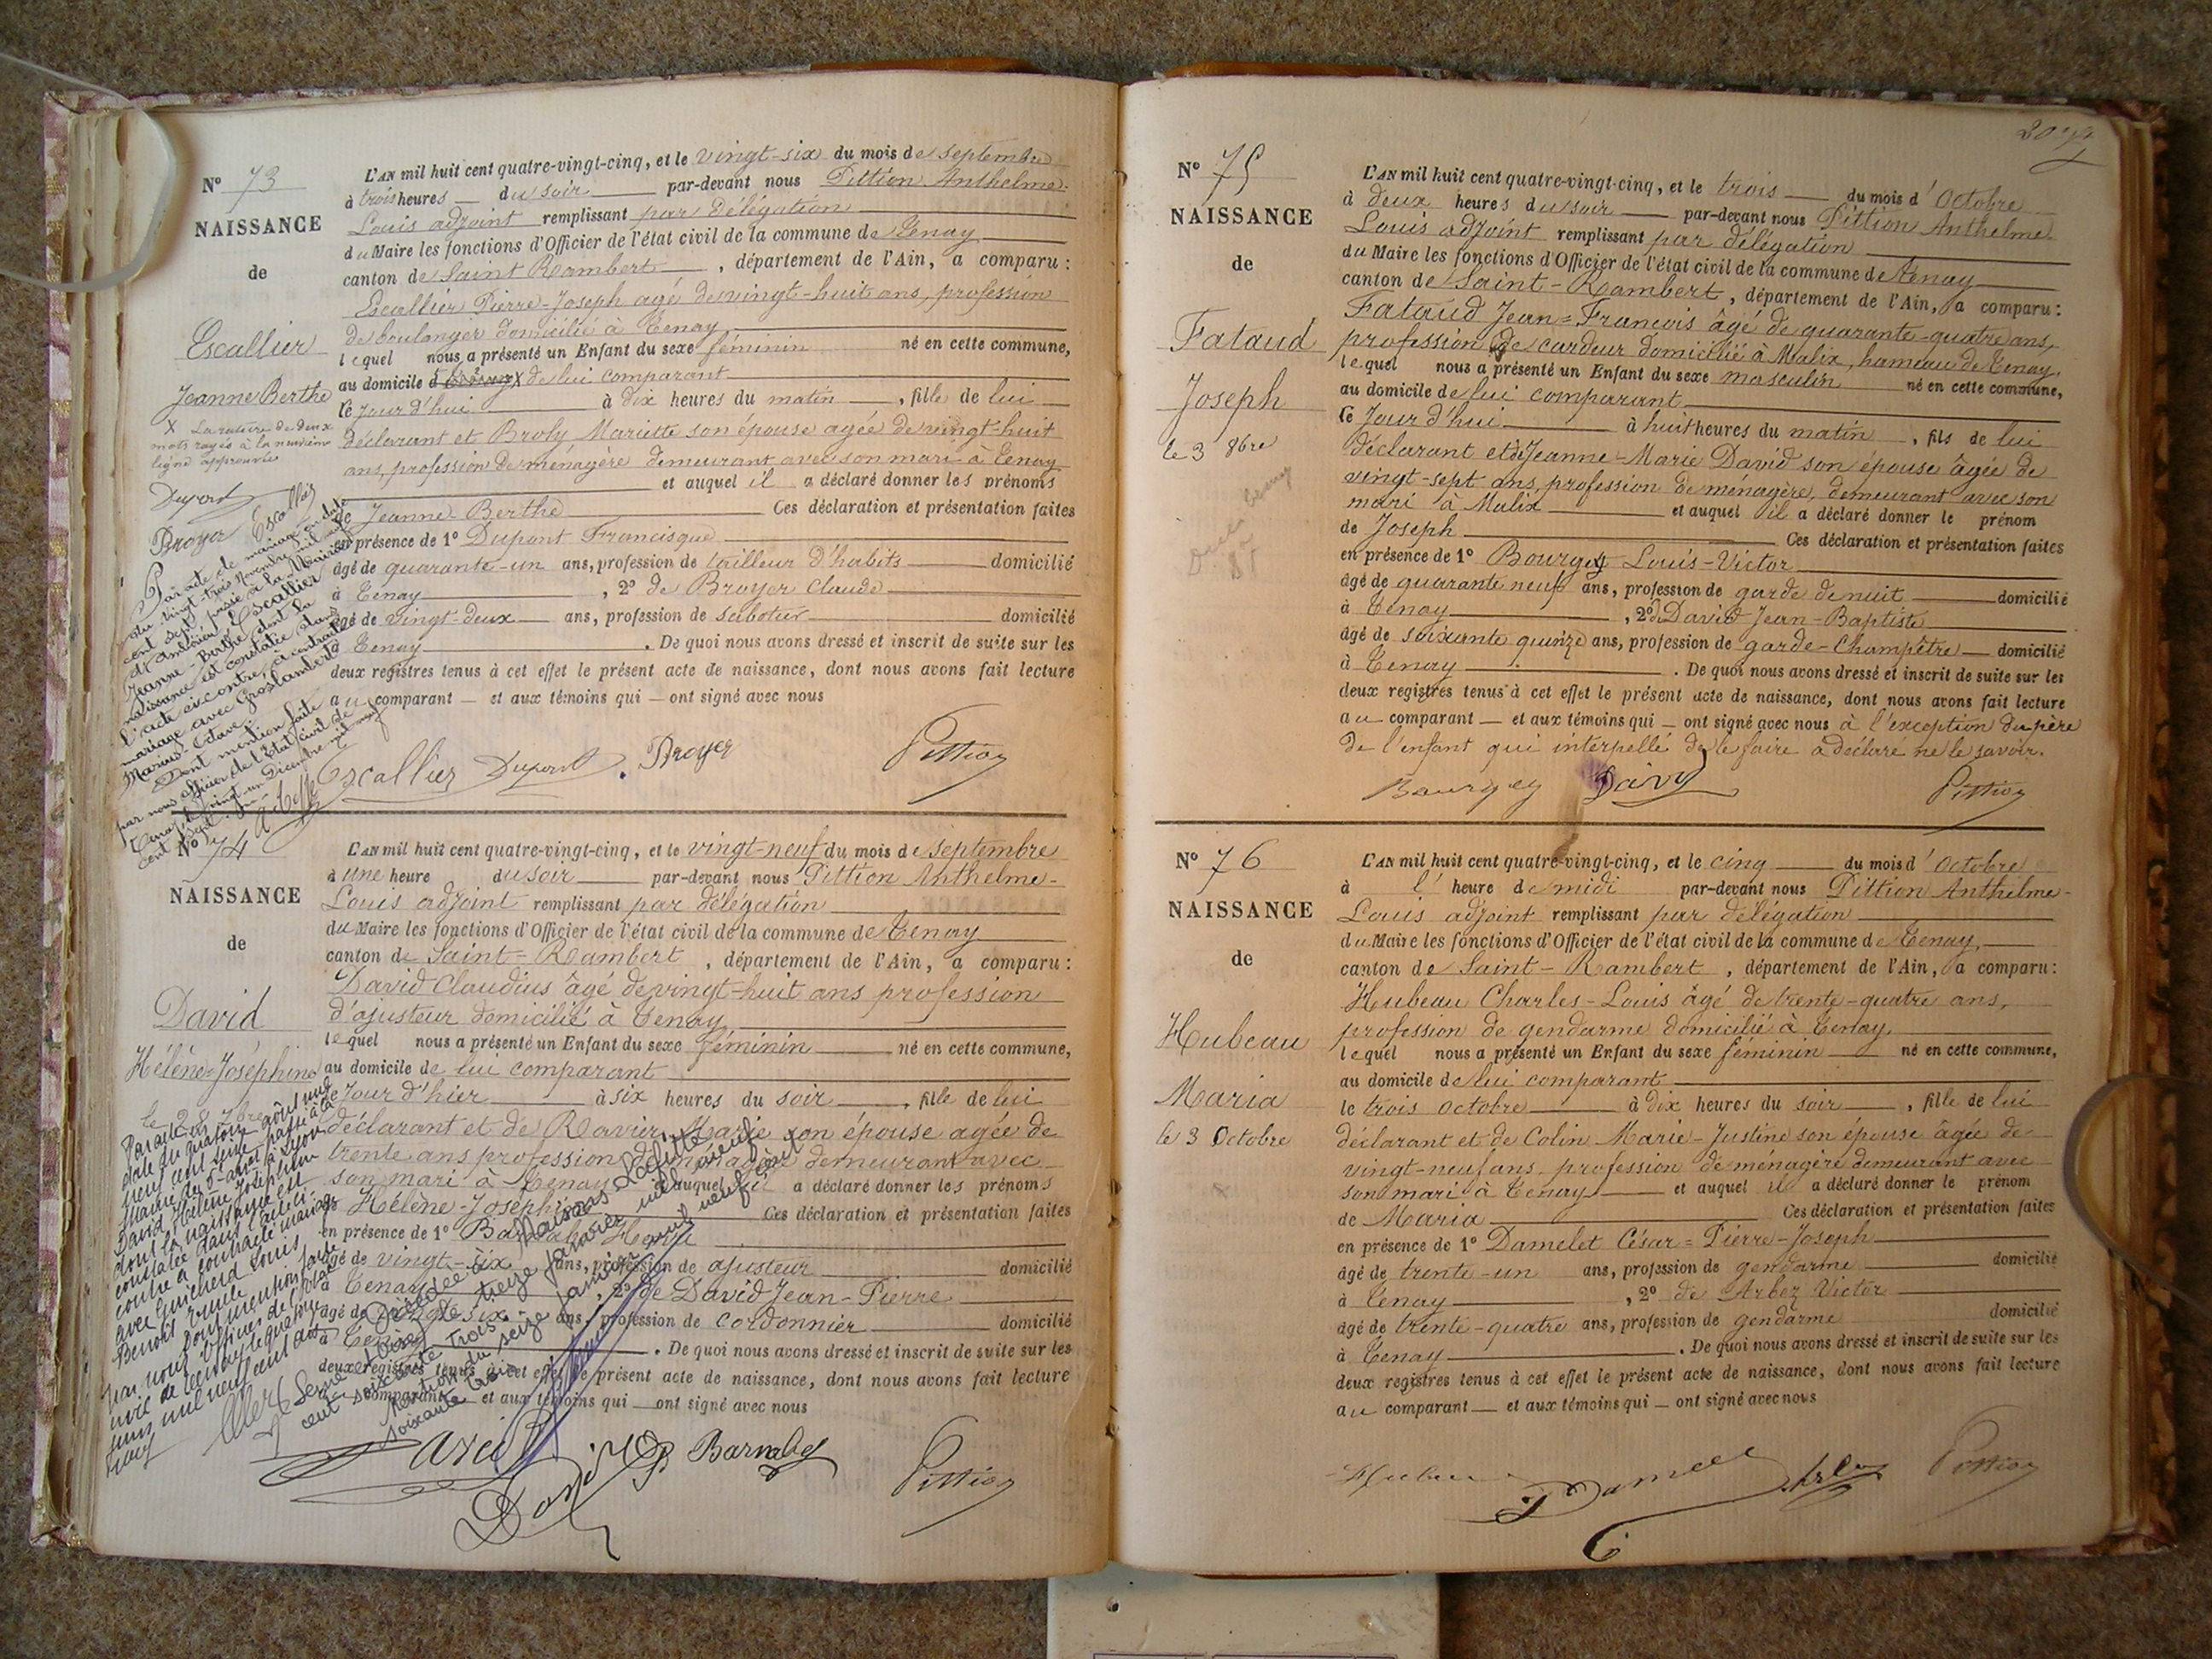 N° 73
NAISSANCE
de
Escallier
Jeanne Berthe
X La rature de deux
mots rayés à la neuvième
ligne approuvée
Dupont
Broyer Escallier
Par acte de mariage en date
du vingt trois Novembre mil neuf
cent sept, passé à la Mairie
d'Escallier
Jeanne-Berthe dont la
naissance est constatée dans
l'acte ci-contre, a contracté
mariage avec Groslambert
Marius-Octave.
Dont mention faite
par nous officier de l'Etat civil de
Tenay, le vingt un Décembre mil neuf
cent sept.
L'AN mil huit cent quatre-vingt-cinq, et le vingt-six du mois de septembre
à trois heures du soir par-devant nous Pittion Anthelme-
Louis adjoint remplissant par délégation
du Maire les fonctions d'Officier de l'état civil de la commune de Tenay
canton de Saint Rambert, département de l'Ain, a comparu :
Escallier Pierre-Joseph agé de vingt-huit ans, profession
de boulanger domicilié à Tenay
lequel nous a présenté un Enfant du sexe féminin né en cette commune,
au domicile X de lui comparant
ce jour d'hui à dix heures du matin, fille de lui
déclarant et Broly Mariette son épouse agée de vingt-huit
ans, profession de ménagère demeurant avec son mari à Tenay
et auquel il a déclaré donner les prénoms
de Jeanne-Berthe Ces déclaration et présentation faites
en présence de 1° Dupont Francisque
âgé de quarante-un ans, profession de tailleur d'habits domicilié
à Tenay, 2° de Broyer Claude
âgé de vingt-deux ans, profession de sabotier domicilié
à Tenay. De quoi nous avons dressé et inscrit de suite sur les
deux registres tenus à cet effet le présent acte de naissance, dont nous avons fait lecture
au comparant et aux témoins qui ont signé avec nous
Escallier Dupont Broyer Pittion
N° 74
NAISSANCE
de
David
Hélène-Joséphine
le 28 7bre
Par acte en
date du quatorze août mil
neuf cent seize passé à la
mairie du 3e arrt à Lyon
David Hélène Joséphine
dont la naissance est
constatée dans l'acte ci-
contre a contracté mariage
avec Guicherd Louis
Benoît
Dont mention faite
par nous Officier de l'Etat
civil de Tenay le quatorze
mil neuf cent dix
neuf
Décédée à Maisons Laffitte
Seine et Oise le treize janvier mil neuf
cent soixante trois
Mention du seize janvier mil neuf cent
soixante trois
L'AN mil huit cent quatre-vingt-cinq, et le vingt-neuf du mois de septembre
à une heure du soir par-devant nous Pittion Anthelme-
Louis adjoint remplissant par délégation
du Maire les fonctions d'Officier de l'état civil de la commune de Tenay
canton de Saint-Rambert, département de l'Ain, a comparu :
David Claudius âgé de vingt-huit ans profession
d'ajusteur domicilié à Tenay
lequel nous a présenté un Enfant du sexe féminin né en cette commune,
au domicile de lui comparant
le Jour d'hier à six heures du soir, fille de lui
déclarant et de Ravier Marie son épouse agée de
trente ans profession de ménagère demeurant avec
son mari à Tenay et auquel il a déclaré donner les prénoms
de Hélène-Joséphine Ces déclaration et présentation faites
en présence de 1°
âgé de vingt-six ans, profession de ajusteur domicilié
à Tenay, 2° de David Jean-Pierre
âgé de six ans, profession de cordonnier domicilié
à Tenay. De quoi nous avons dressé et inscrit de suite sur les
deux registres tenus à cet effet le présent acte de naissance, dont nous avons fait lecture
au comparant et aux témoins qui ont signé avec nous
David Barnabé Pittion
N° 75
NAISSANCE
de
Fataud
Joseph
le 3 8bre
L'AN mil huit cent quatre-vingt-cinq, et le trois du mois d'Octobre
à deux heures du soir par-devant nous Pittion Anthelme-
Louis adjoint remplissant par délégation
du Maire les fonctions d'Officier de l'état civil de la commune de Tenay
canton de Saint-Rambert, département de l'Ain, a comparu :
Fataud Jean-Francois âgé de quarante-quatre ans,
profession de cardeur domicilié à Malix, hameau de Tenay,
lequel nous a présenté un Enfant du sexe masculin né en cette commune,
au domicile de lui comparant
ce Jour d'hui à huit heures du matin, fils de lui
déclarant et de Jeanne-Marie David son épouse âgée de
vingt-sept ans, profession de ménagère, demeurant avec son
mari à Malix et auquel il a déclaré donner le prénom
de Joseph Ces déclaration et présentation faites
en présence de 1° Bourgey Louis-Victor
âgé de quarante neuf ans, profession de garde de nuit domicilié
à Tenay, 2° de David Jean-Baptiste
âgé de soixante quinze ans, profession de garde-Champêtre domicilié
à Tenay. De quoi nous avons dressé et inscrit de suite sur les
deux registres tenus à cet effet le présent acte de naissance, dont nous avons fait lecture
au comparant et aux témoins qui ont signé avec nous à l'exception du père
de l'enfant qui interpellé de le faire a déclaré ne le savoir.
Bourgey David Pittion
N° 76
NAISSANCE
de
Hubeau
Maria
le 3 Octobre
L'AN mil huit cent quatre-vingt-cinq, et le cinq du mois d'Octobre
à l'heure de midi par-devant nous Pittion Anthelme-
Louis adjoint remplissant par délégation
du Maire les fonctions d'Officier de l'état civil de la commune de Tenay,
canton de Saint-Rambert, département de l'Ain, a comparu :
Hubeau Charles-Louis âgé de trente-quatre ans,
profession de gendarme domicilié à Tenay,
lequel nous a présenté un Enfant du sexe féminin né en cette commune,
au domicile de lui comparant
le trois octobre à dix heures du soir, fille de lui
déclarant et de Colin Marie-Justine son épouse âgée de
vingt-neuf ans, profession de ménagère demeurant avec
son mari à Tenay et auquel il a déclaré donner le prénom
de Maria Ces déclaration et présentation faites
en présence de 1° Damelet César-Pierre-Joseph
âgé de trente-un ans, profession de gendarme domicilié
à Tenay, 2° de Arbez Victor
âgé de trente-quatre ans, profession de gendarme domicilié
à Tenay. De quoi nous avons dressé et inscrit de suite sur les
deux registres tenus à cet effet le présent acte de naissance, dont nous avons fait lecture
au comparant et aux témoins qui ont signé avec nous
Hubeau Damelet Arbez Pittion